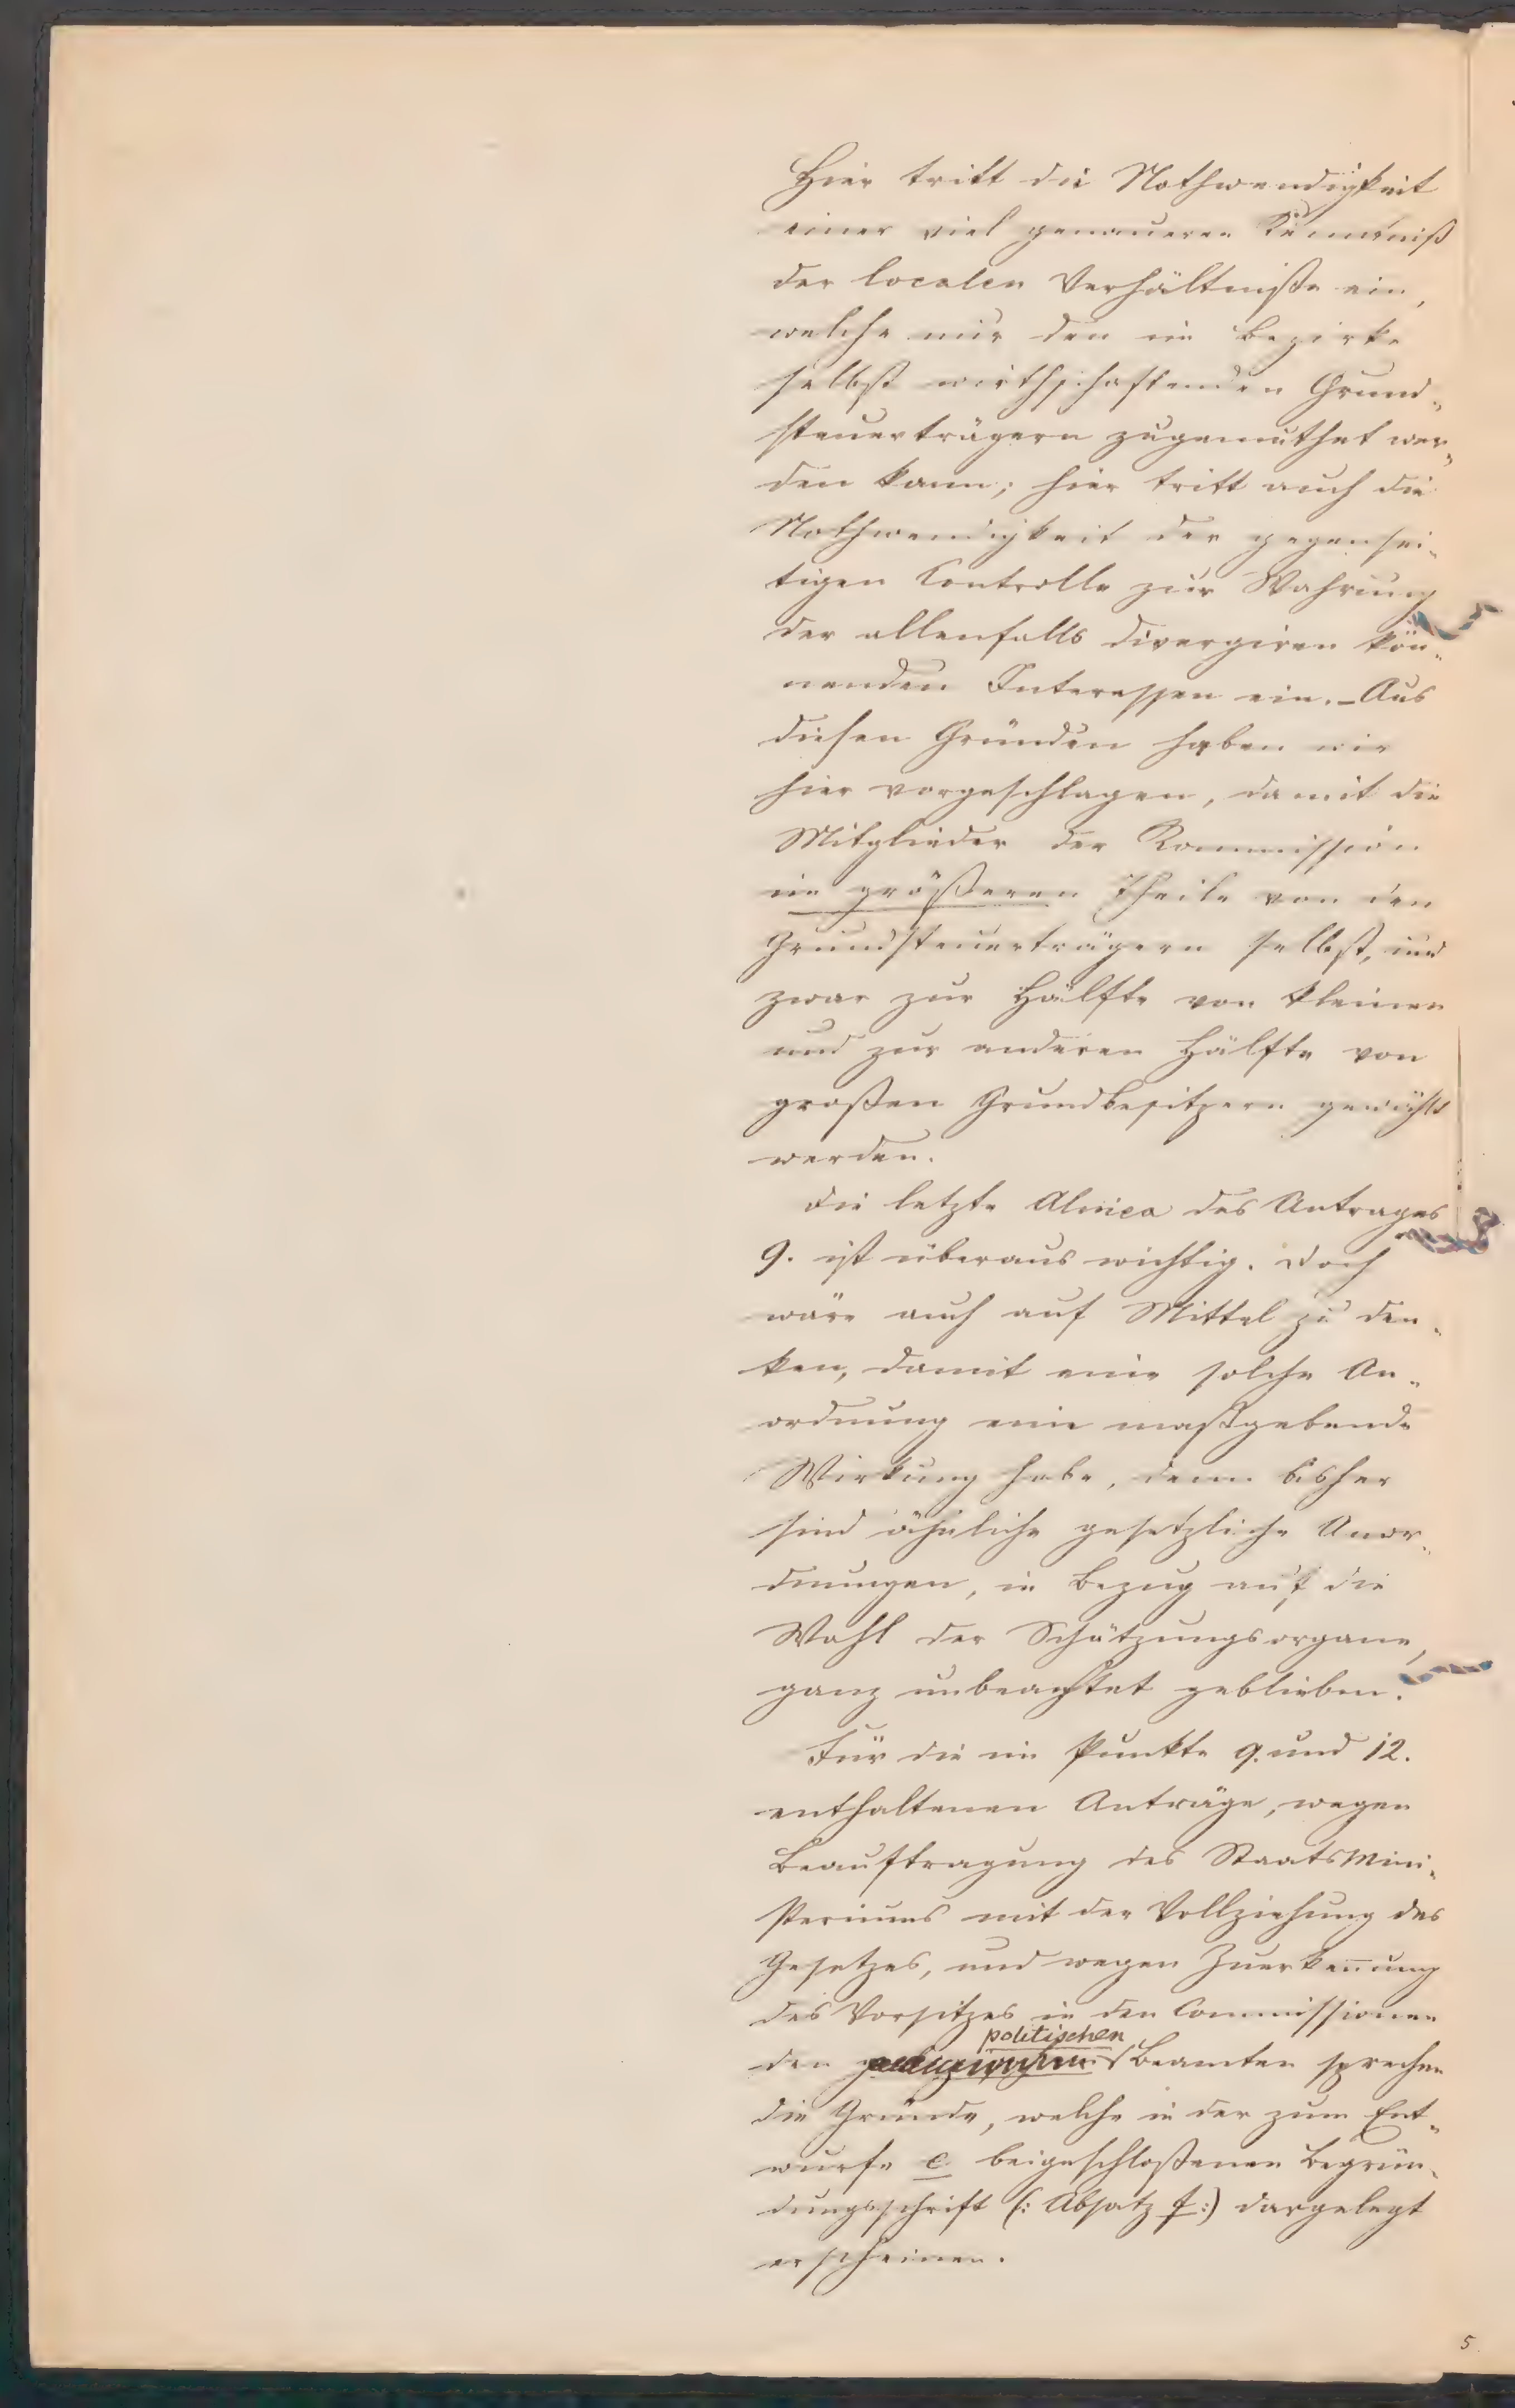 Hier tritt die Nothwendigkeit
einer viel genaueren Kenntniß
der localen Verhältniße ein,
welche nur den im Bezirke
selbst wirthschaftenden Grund„
steuerträgern zugemuthet wer„
den kann; hier tritt auch die
Nothwendigkeit der gegensei„
tigen Controlle zur Wahrung
der allenfalls divergiren kön„
nenden Interessen ein. – Aus
diesen Gründen haben wir
hier vorgeschlagen, damit die
Mitglieder der Kommission
im größeren Theile von den
Grundsteuerträgern selbst, und
zwar zur Hälfte von kleinen
und zur anderen Hälfte von
großen Grundbesitzern gewählt
werden.
Die letzte Alinea des Antrages
9. ist überaus wichtig. Doch
wäre auch auf Mittel zu den„
ken, damit eine solche An„
ordnung eine maßgebende
Wirkung habe, denn bisher
sind ähnliche gesetzliche Anor„
dnungen, in Bezug auf die
Wahl der Schätzungsorgane,
ganz unbeachtet geblieben.
Für die im Punkte 9. und 12.
enthaltenen Anträge, wegen
Beauftragung des StaatsMini„
steriums mit der Vollziehung des
Gesetzes, und wegen Zuerkennung
des Vorsitzes in den Commissionen
politischen
den Beamten sprechen
die Gründe, welche in der zum Ent„
wurfe C. beigeschloßenen Begrün„
dungsschrift (: Absatz f :) dargelegt
erscheinen.
5